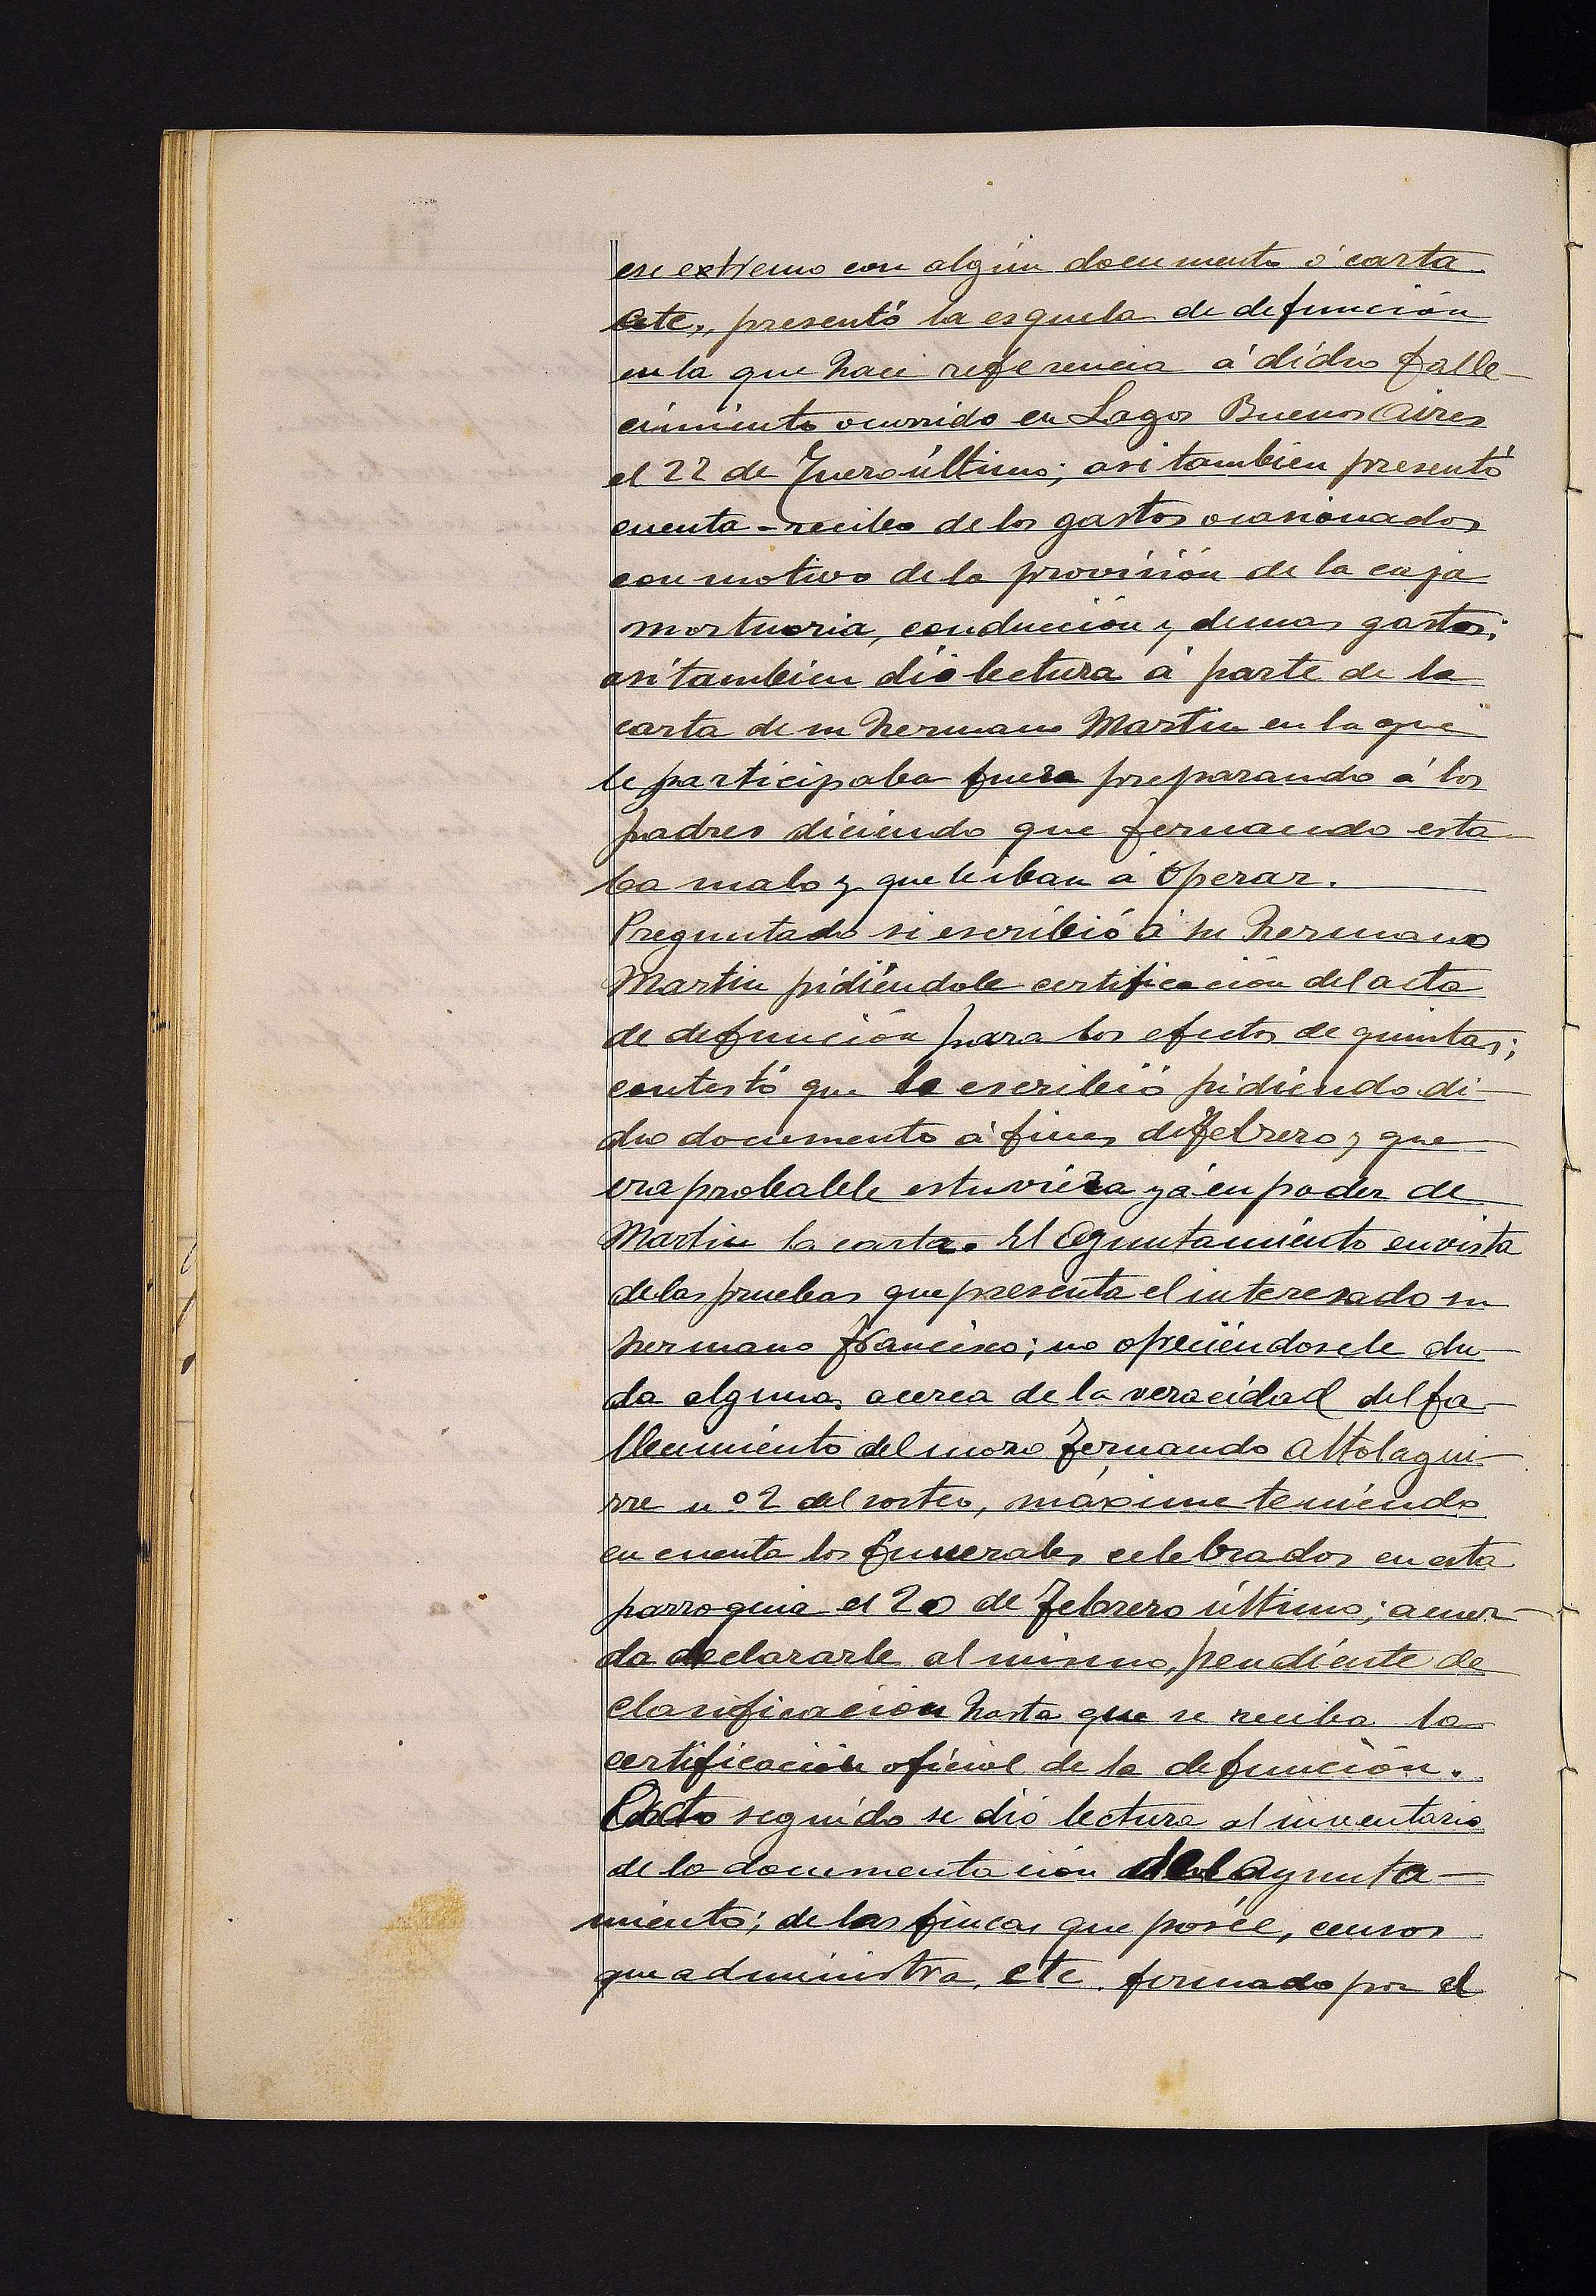 ese extremo con algún documento ó carta
ete,, presentó la esquela de defunción
en la que hace referencia á dicho falle-
cimiento ocurrido en Lagos Buenos Aires
el 22 de Enero último; asi tambien presentó
cuenta-recibo de los gastos ocasionados
con motivo de la provisión de la caja
mortuoria, conducción y demas gastos;
asi tambien dió lectura á parte de la
carta de su hermano Martin en la que
le participaba fuera preparando á los
padres diciendo que Fernando esta-
ba malo y que le iban á operar.
Preguntado si escribió á su hermano
Martin pidiéndole certificación del acta
de defunción para los efectos de quintas;
contestó que le escribió pidiendo di-
cho documento á fines de Febrero y que
era probable estuviera yá en poder de
Martin la carta. El Ayuntamiento en vista
de las pruebas que presenta el interesado su
hermano Francisco; no ofreciéndosele du-
da alguna, acerca de la veracidad del fa-
llecimiento del mozo Fernando Altolagui-
rre nº 2 del sorteo, máxime teniendo
en cuenta los funerales celebrados en esta
parroquia el 20 de Febrero último; acuer-
da declararle al mismo, pendiente de
clasificación hasta que se reciba la
certificación oficial de la defunción.
Acto seguido se dió lectura al inventario
de la documentación del Ayunta-
miento; de las fincas que posée, censos
que administra, etc. formado por el